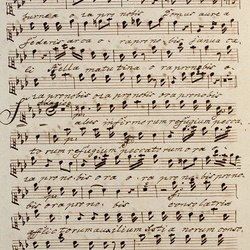 burnea ora pro nobis Domus aurea
federis arca ora pro nobis Janua cae
li stella matutina ora pro nobis o
ra pro nobis ora pro nobis ora pro nobis
Salus infirmorum refugium pecca
torum refugium peccatorum ora
ra pro nobis ora ora pro nobis pro no
bis ora pro nobis consolatrix
afflictorum auxilium